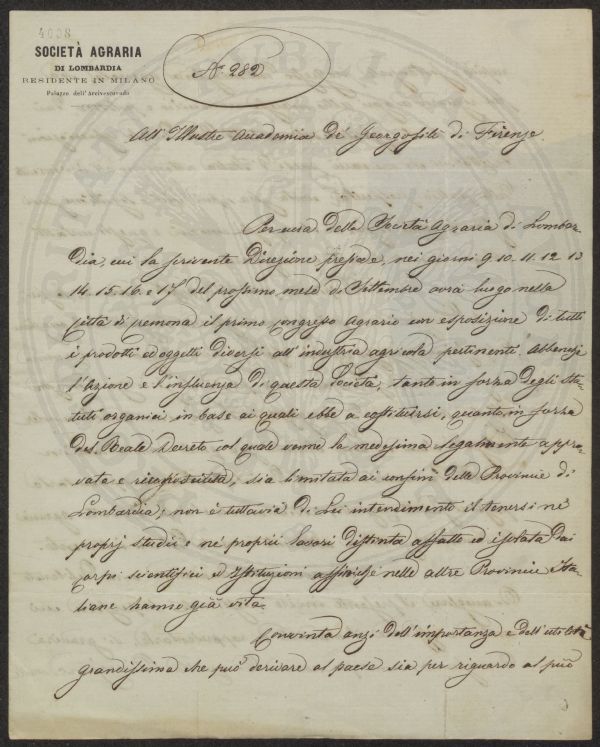 4098
SOCIETÀ AGRARIA
DI LOMBARDIA
RESIDENTE IN MILANO
Palazzo dell'Arcivescovado
N.° 282
All'Illustre Accademia de' Georgofili di Firenze
Per cura della Società Agraria di Lombar-
dia, cui la scrivente Direzione presiede, nei giorni 9. 10. 11. 12. 13
14. 15. 16. e 17 del prossimo mese di Settembre avrà luogo nella
Città di Cremona il primo Congresso Agrario con esposizione di tutti
i prodotti ed oggetti diversi all'industria agricola pertinenti. Abbenchè
l'Azione e l'influenza di questa Società, tanto in forza degli Sta-
tuti organici in base ai quali ebbe a costituirsi, quanto in forza
del Reale Decreto col quale venne la medesima legalmente appro-
vata e riconosciuta, sia limitata ai confini delle Provincie di
Lombardia, non è tuttavia di Lei intendimento il tenersi ne'
proprj studii e ne' proprii lavori distinta affatto ed isolata dai
corpi scientifici ed Istituzioni che nelle altre Provincie Ita-
liane hanno già vita.
Convinta anzi dell'importanza e dell'utilità
grandissima che può derivare al paese sia per riguardo al più